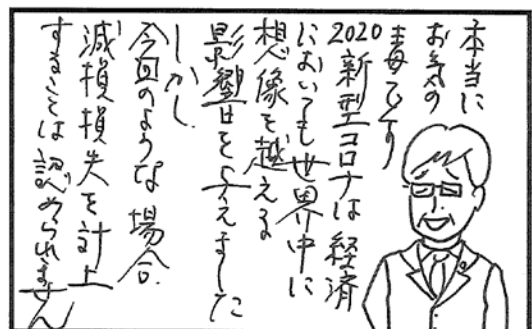 本当に
お気の
毒です
2020新型コロナは経済
においても世界中に
想像を越える
影響を与えました
しかし
今回のような場合、
減損損失を計上
することは認められません